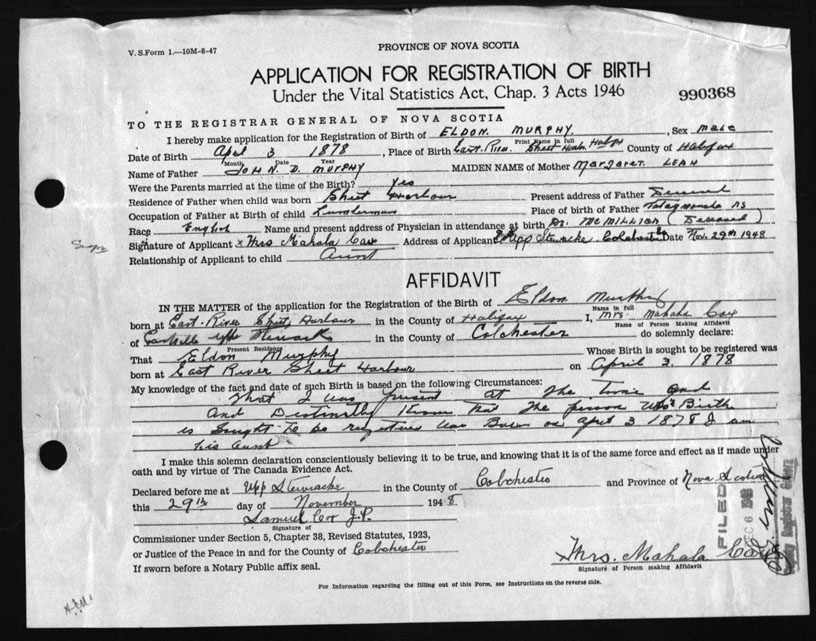 V. S. Form 1.—10M-8-47
PROVINCE OF NOVA SCOTIA
APPLICATION FOR REGISTRATION OF BIRTH
Under the Vital Statistics Act, Chap. 3 Acts 1946
990368
TO THE REGISTRAR GENERAL OF NOVA SCOTIA
I hereby make application for the Registration of Birth of ELDON MURPHY, Sex male
Print Name in full
Date of Birth April 3 1878, Place of Birth East River Sheet Harbor Halifax County of Halifax
Month Date Year
Name of Father JOHN D. MURPHY MAIDEN NAME of Mother Margaret LEAH
Were the Parents married at the time of the Birth? Yes
Residence of Father when child was born Sheet Harbour Present address of Father Deceased
Occupation of Father at Birth of child Lumberman Place of birth of Father NS
Race English Name and present address of Physician in attendance at birth Dr. McMILLIAN (Deceased)
Signature of Applicant Mrs Mahala Cox Address of Applicant Upp Stewiacke Colchester Date Nov. 29th 1948
Relationship of Applicant to child Aunt
AFFIDAVIT
IN THE MATTER of the application for the Registration of the Birth of Eldon Murphy
Name in full
born at East River Sheet Harbour in the County of Halifax I, Mrs Mahala Cox
Name of Person Making Affidavit
of Upp Stewiacke in the County of Colchester do solemnly declare:
Present Residence
That Eldon Murphy Whose Birth is sought to be registered was
born at East River Sheet Harbour on April 3 1878
My knowledge of the fact and date of such Birth is based on the following Circumstances:
That I was present at the time and
And Distinctly Know that the person Who's Birth
is sought to be registred was Born on April 3 1878 I am
his aunt
I make this solemn declaration conscientiously believing it to be true, and knowing that it is of the same force and effect as if made under
oath and by virtue of The Canada Evidence Act.
Declared before me at Upp Stewiacke in the County of Colchester and Province of Nova Scotia
this 29th day of November 1948
Samuel Cox J.P.
Signature of
Commissioner under Section 5, Chapter 38, Revised Statutes, 1923,
or Justice of the Peace in and for the County of Colchester
If sworn before a Notary Public affix seal.
Mrs. Mahala Cox
Signature of Person making Affidavit
For Information regarding the filling out of this Form, see Instructions on the reverse side.
FILED
DEC 6 1948
Deputy Registrar General